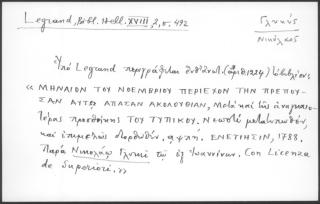 Legrand, Bibl. Hell. XVIII, 2, σ. 492
Γλυκύς
Νικόλαος
Ὑπὸ Legrand περιγράφεται (ἀριθ. 1224)
« ΜΗΝΑΙΟΝ ΤΟΥ ΝΟΕΜΒΡΙΟΥ ΠΕΡΙΕΧΟΝ ΤΗΝ ΠΡΕΠΟΥ-
ΣΑΝ ΑΥΤΩ ΑΠΑΣΑΝ ΑΚΟΛΟΥΘΙΑΝ, Μετὰ καὶ τῆς ἀναγκαιο-
τέρας προσθήκης ΤΟΥ ΤΥΠΙΚΟΥ. Νεωστὶ μετατυπωθὲν,
καὶ ἐπιμελῶς διορθωθέν. αψπή. ΕΝΕΤΙΗΣΙΝ, 1788.
Παρὰ Νικολάῳ Γλυκεῖ τῷ ἐξ Ἰωαννίνων. Con Licenza
de Superiori. »